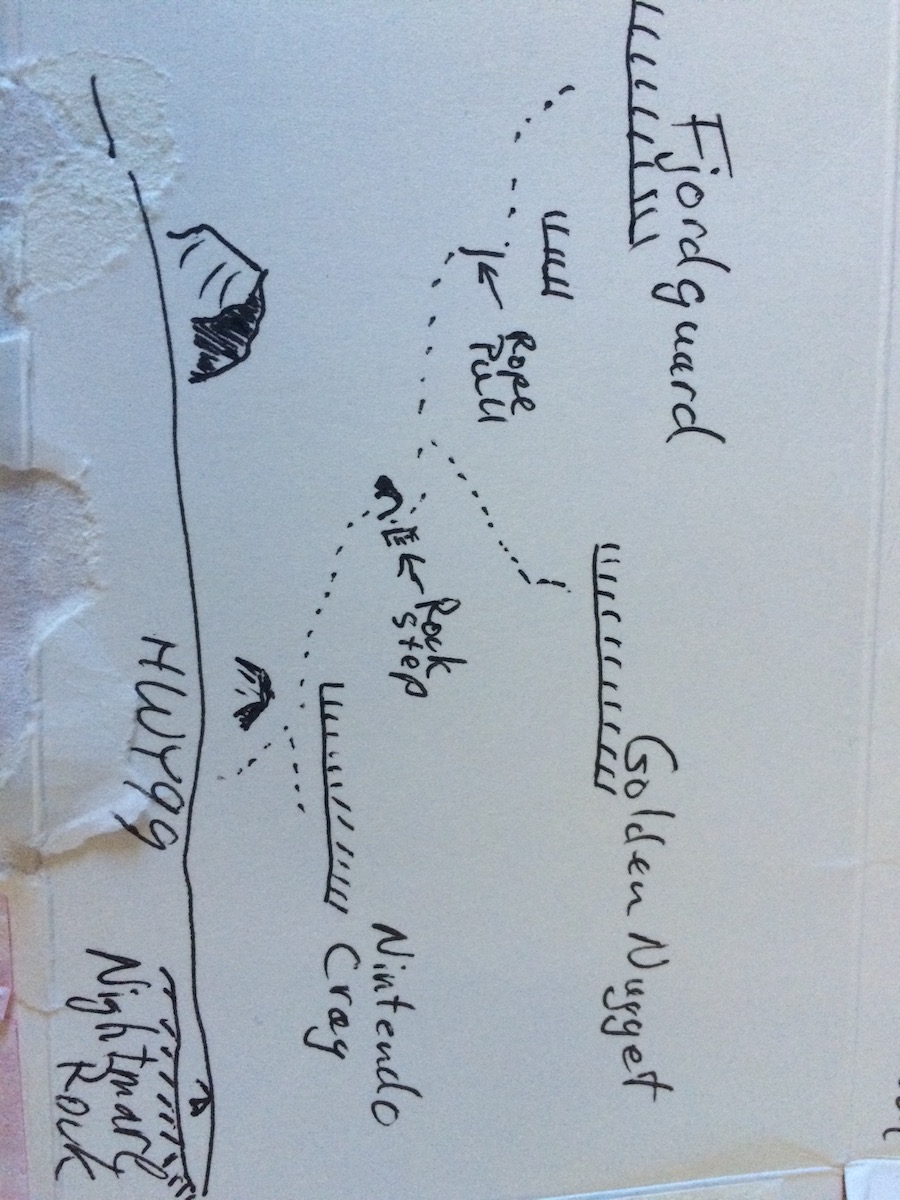 Fjordguard
Rope
Pull
Golden Nugget
Rock
step
Nintendo
Crag
HWY99
Nightmare
Rock